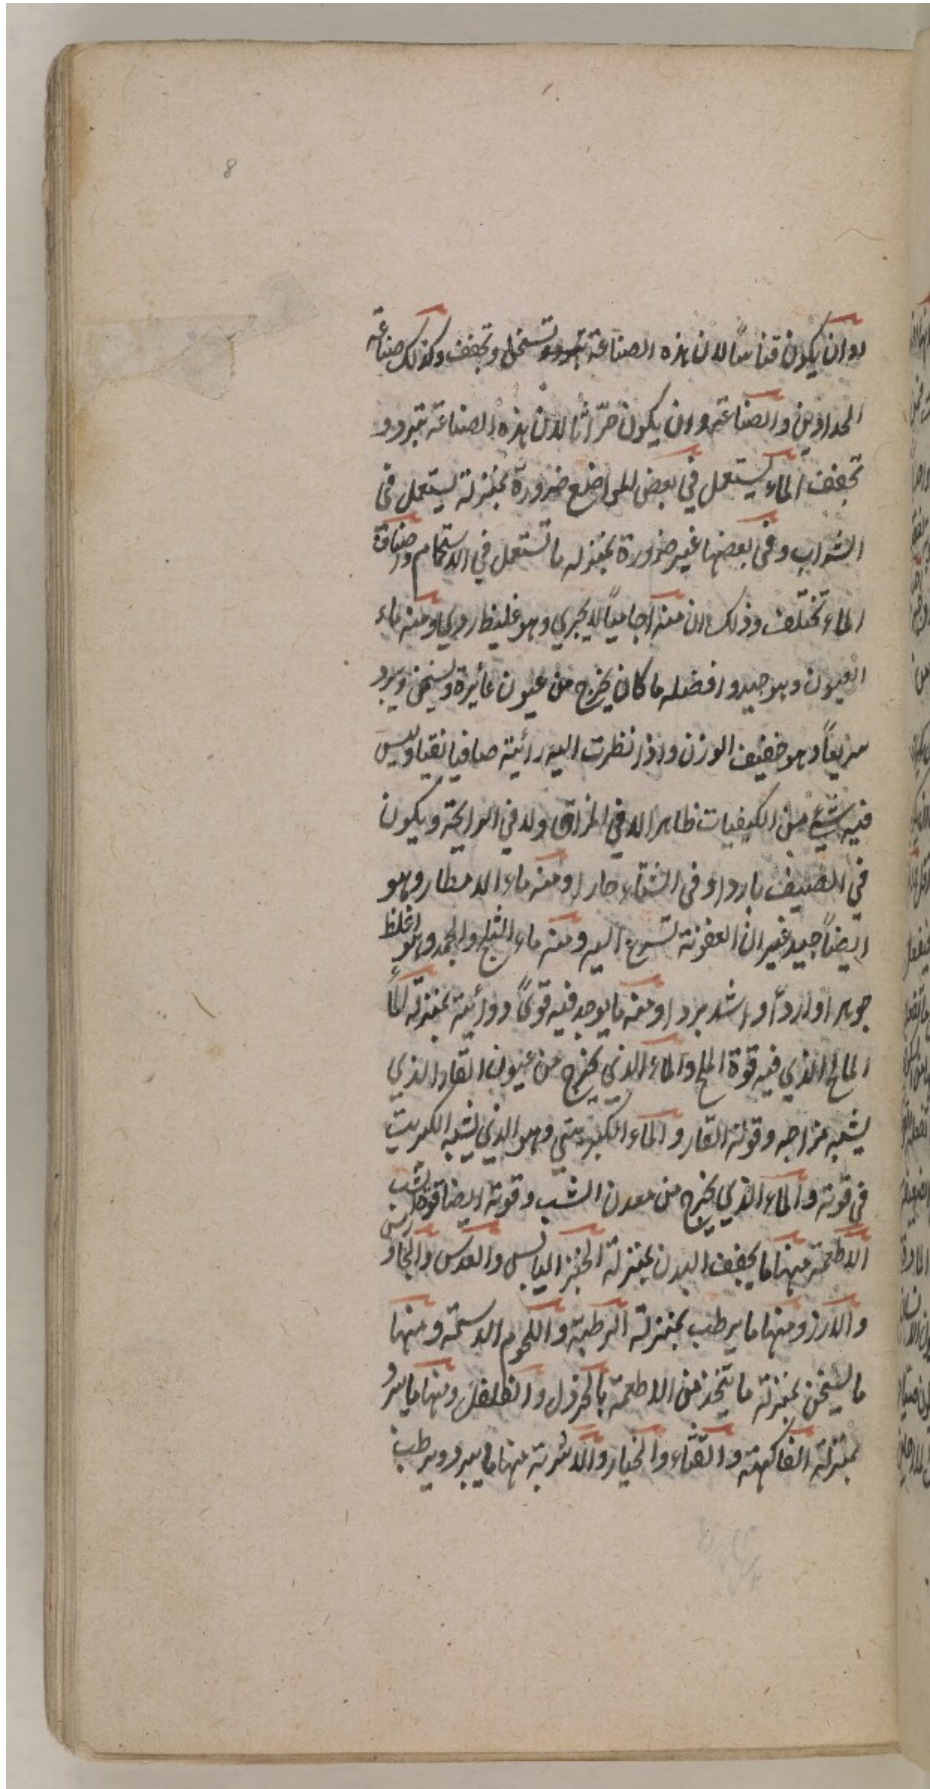 8
بد وان يكون قناصا لان هذه الصناعة تسخن وتجفف وكذلك صناعة
الحدادين والصناعة وان يكون حرّاثا لان هذه الصناعة تبرد و
تجفف الماء يستعمل في بعض المواضع ضرورة بمنزلة يستعمل فى
الشراب وفى بعضها غير ضرورة بمنزله ما تستعمل في الاستحمام واصناف
الماء تختلف وذلك ان منه اجاميا لا يجري وهو غليظ ردي ومنه ماء
العيون وهو جيد وافضله ما كان يخرج من عيون غائرة ويسخن ويبرد
سريعاً وهو خفيف الوزن واذا نظرت اليه رائيته صافيا نقيا وليس
فيه شيء من الكيفيات ظاهرا لا في المذاق ولا في الرايحة ويكون
في الصيف باردا وفى الشتاء حارا ومنه ماء الامطار وهو
ايضاً جيد غير ان العفونة تسرع اليه ومنه ماء الثلج والجمد وهو اغلظ
جوهرا واردأ واشد بردا ومنه ما يوجد فيه قوى ودائية بمنزلة الماء
المالح الذي فيه قوة الملح والماء الذي يخرج من عيون القار الذي
يشبه مزاجه وقوته القار والماء الكبريتي وهو الذي يشبه الكبريت
في قوته والماء الذي يخرج من معدن الشب وقوته ايضا قوة الشب
الاطعمة منها ما يجفف البدن بمنزلة الخبز اليابس والعدس والجاورس
والارز ومنها ما يرطب بمنزلة الرطبة واللحوم الدسمة ومنها
ما يسخن بمنزلة ما يتخذ من الاطعمة بالخردل والفلفل ومنها ما يبرد
بمنزلة الفاكهة والقثاء والخيار والاشربة منها ما يبرد ويرطب